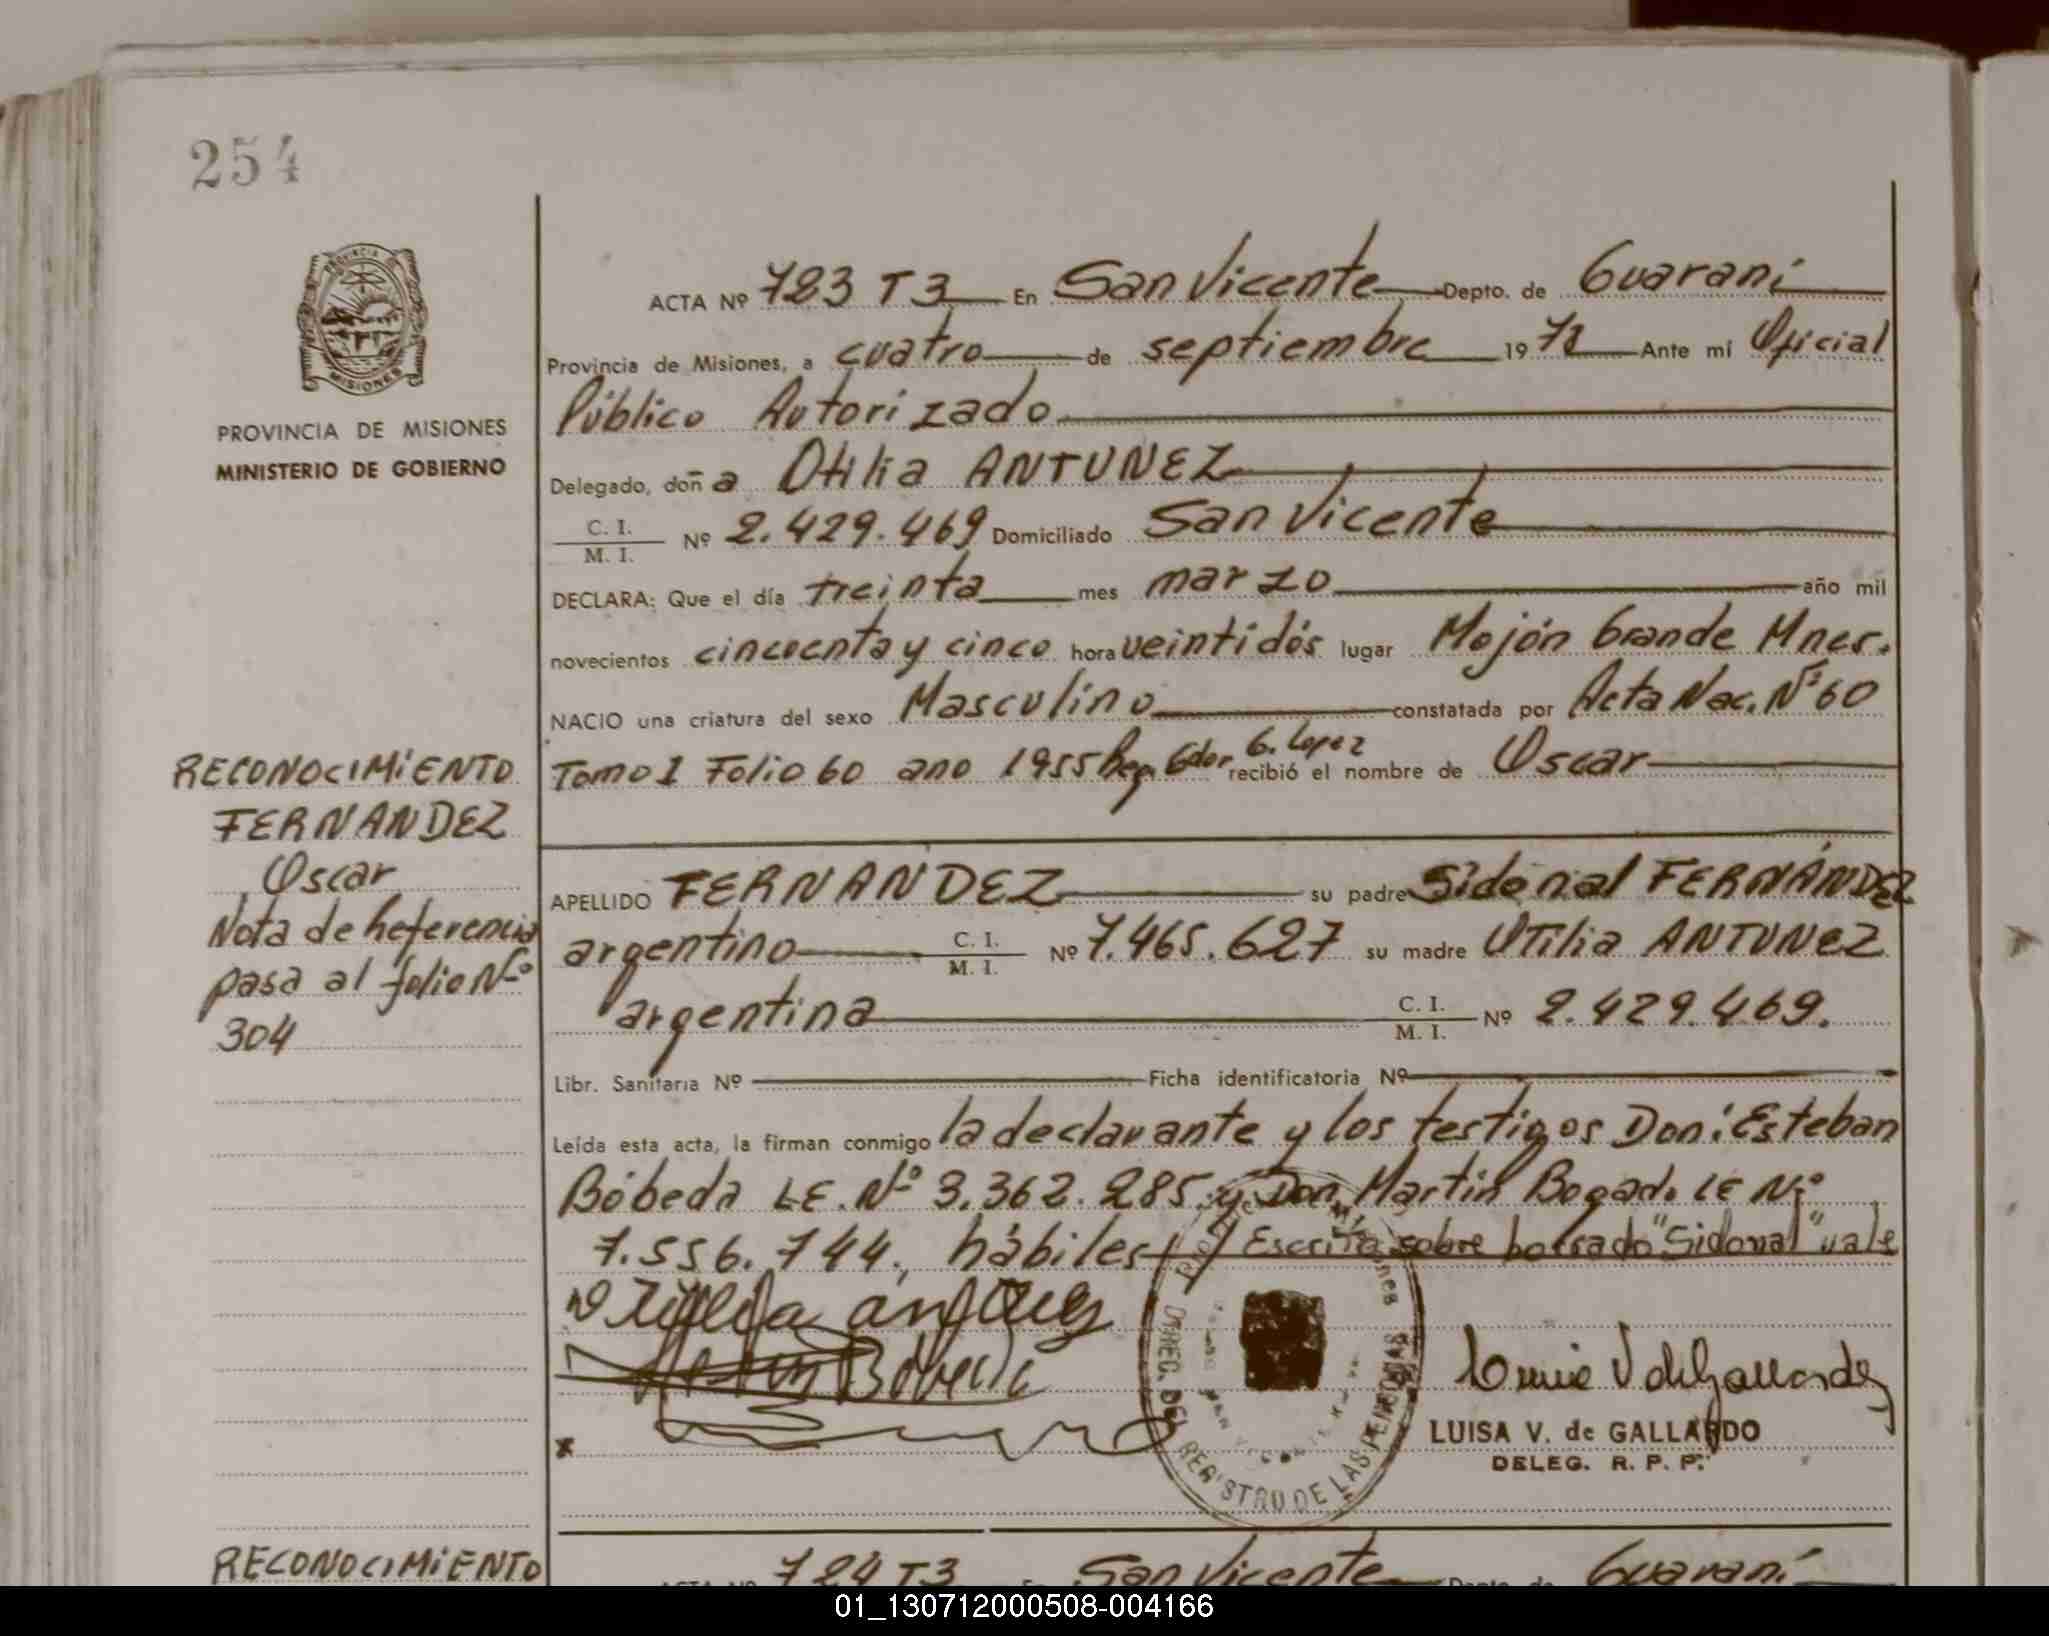 254
PROVINCIA DE MISIONES
MINISTERIO DE GOBIERNO
ACTA Nº 783 T3 En San Vicente Depto. de Guaraní
Provincia de Misiones, a cuatro de septiembre 19 Ante mí Oficial
Público Autorizado
Delegado, doña Otilia ANTUNEZ
C. I.
M. I. Nº 2.429.469 Domiciliado San Vicente
DECLARA: Que el día treinta mes marzo año mil
novecientos cincuenta y cinco hora veintidós lugar Mojón Grande Mnes.
NACIO una criatura del sexo Masculino constatada por Acta Nac. Nº 60
Tomo I Folio 60 ano 1955 Reg. Gdor. G. Lopez recibió el nombre de Oscar
RECONOCIMIENTO
FERNANDEZ
Oscar
Nota de Referencia
pasa al folio Nº
304
APELLIDO FERNANDEZ su padre Sidonal FERNÁNDEZ
argentino C. I. M. I. Nº 7.465.627 su madre OTilia ANTUNEZ
argentina C. I. M. I. Nº 2.429.469.
Libr. Sanitaria Nº Ficha identificatoria Nº
Leída esta acta, la firman conmigo la declarante y los testigos Don: Esteban
Bóbeda LE. Nº 3.362.285 y Don Martín Bogado LE Nº
7.556.744., hábiles // Escrito sobre borrado "Sidonal" vale
DIREC. DEL REGISTRO DE LAS PERSONAS
LUISA V. de GALLARDO
DELEG. R. P. P.
RECONOCIMIENTO
ACTA Nº 784 T3 En San Vicente Depto. de Guaraní
01_130712000508-004166